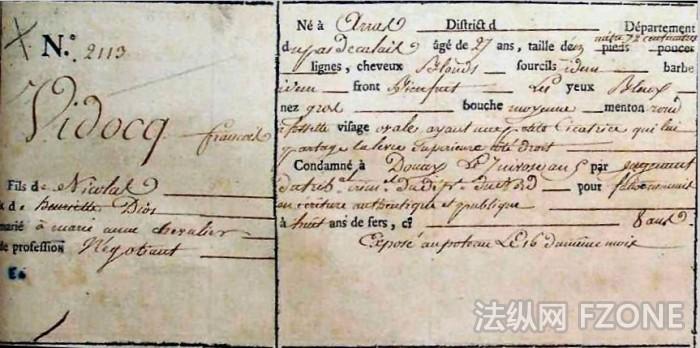 N.° 2113
Vidocq
françois
Fils de Nicolas
& d Henriette Dion
marié à marie anne chevalier
de profession Négotiant
Né à Arras District d Département
du pas de calais âgé de 27 ans, taille de pieds pouces
mètre 72 centimètres
lignes, cheveux Blonds sourcils idem barbe
idem front Bienfait Les yeux Bleux
nez gros bouche moyenne menton rond
à fossette visage ovale, ayant une petite Cicatrice qui lui
partage la levre superieure côté droit
Condamné à Douay Le 7 nivose an 5 par jugement
du trib. crim. du dép.t du N D pour faux commis
en écriture authentique et publique
à huit ans de fers, ci 8 ans
Exposé au poteau Le 16 du même mois
法纵网 FZONE